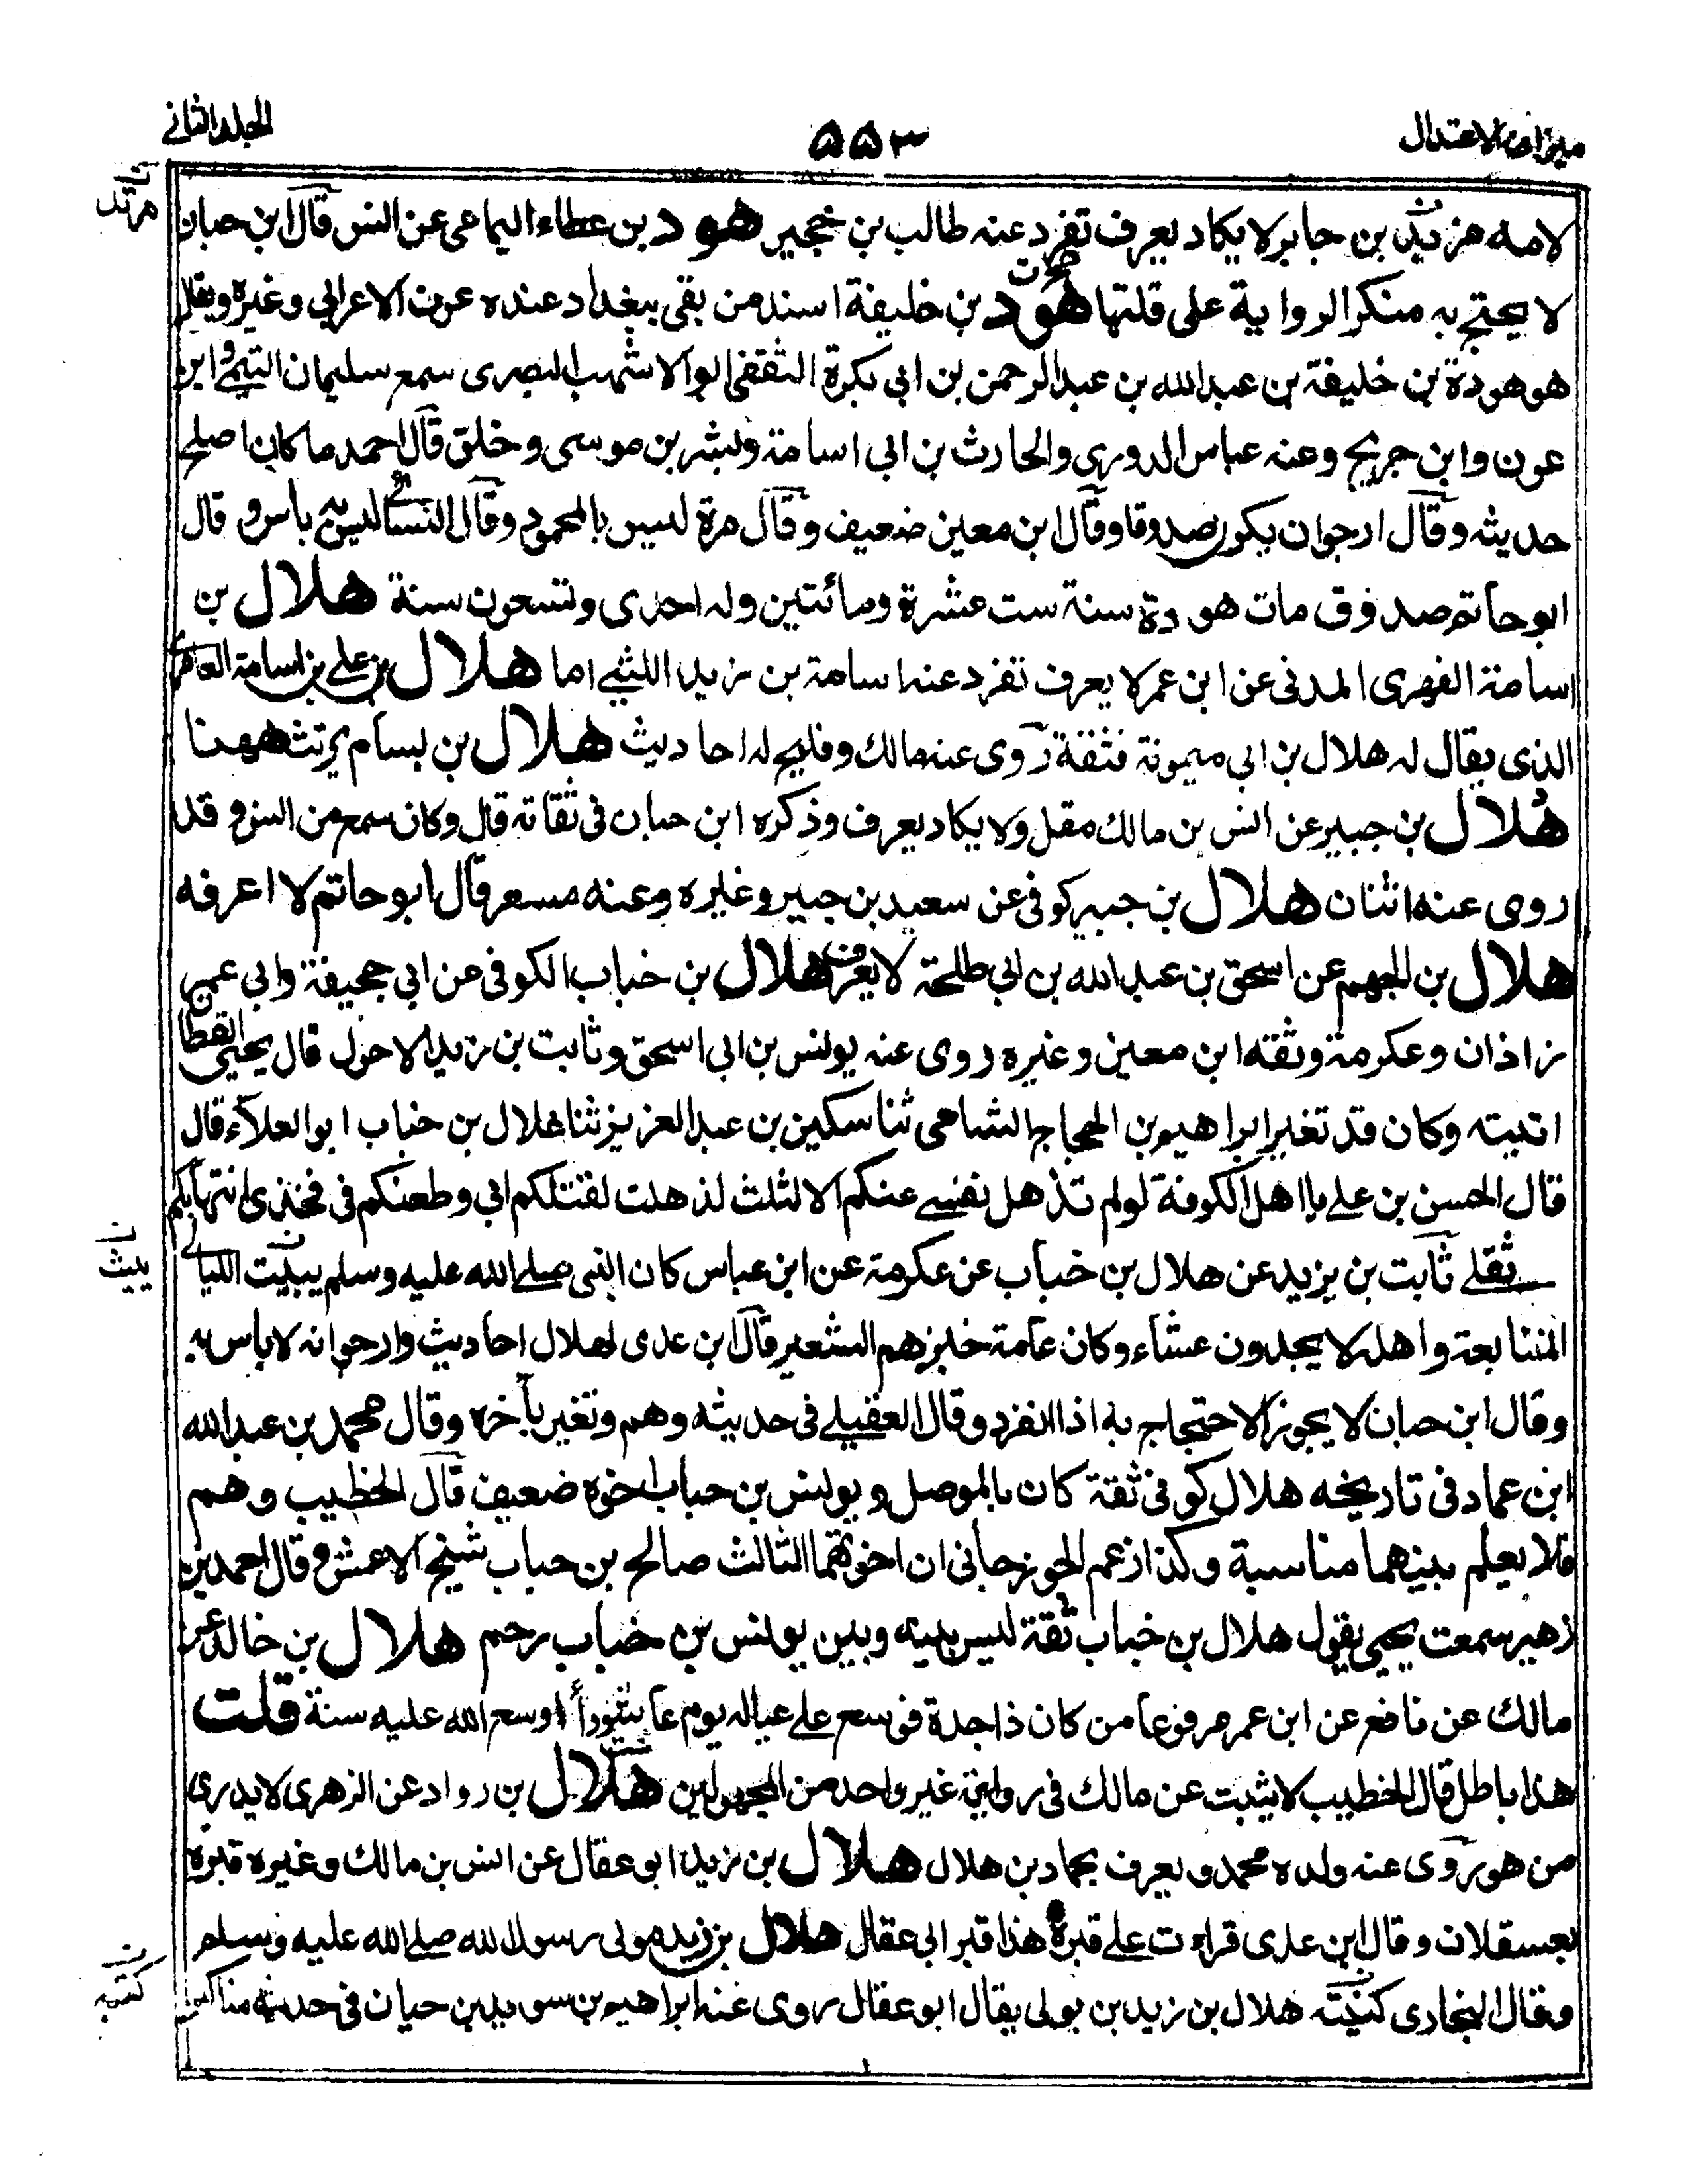 ميزان الاعتدال
۵۵۳
المجلد الثانى
لامه مزيدة بن جابر لا يكاد يعرف تفرد عنه طالب بن حجير هود بن عطاء اليمامى عن انس قال ابن حبان
مرثد
لا يحتج به منكر الرواية على قلتها هوذة بن خليفة اسند من بقى ببغداد عنده عون الاعرابي وغيره ويقال
هو هوذة بن خليفة بن عبد الله بن عبد الرحمن بن ابى بكرة الثقفى ابو الاشهب البصرى سمع سليمان التيمى وابن
عون وابن جريج وعنه عباس الدورى والحارث بن ابي اسامة وبشر بن موسى وخلق قال احمد ما كان اصلح
حديثه وقال ارجو ان يكون صدوقا وقال ابن معين ضعيف وقال مرة ليس بالمحمود وقال النسائى ليس به باس وقال
ابو حاتم صدوق مات هوذة سنة ست عشرة ومائتين وله احدى وتسعون سنة هلال بن
اسامة الفهرى المدنى عن ابن عمر لا يعرف تفرد عنه اسامة بن زيد الليثى اما هلال بن على بن اسامة العامرى
الذى يقال له هلال بن ابي ميمونة فثقة روى عنه مالك وفليح له احاديث هلال بن بسام يرتث ههنا
هلال بن جبير عن انس بن مالك مقل ولا يكاد يعرف وذكره ابن حبان فى ثقاته قال وكان سمع من انس وقد
روى عنه اثنان هلال بن جبير كوفى عن سعيد بن جبير وغيره وعنه مسعر قال ابو حاتم لا اعرفه
هلال بن الجهم عن اسحق بن عبد الله بن ابي طلحة لا يعرف هلال بن خباب الكوفى عن ابي جحيفة وابي عمر
زاذان وعكرمة وثقه ابن معين وغيره روى عنه يونس بن ابى اسحق وثابت بن زيد الاحول قال يحيى القطان
اتيته وكان قد تغير ابراهيم بن الحجاج الشامى ثنا سكين بن عبد العزيز ثنا هلال بن خباب ابو العلاء قال
قال الحسن بن على يا اهل الكوفة لو لم تذهل نفسى عنكم الا لثلث لذهلت لقتلكم ابي وطعنكم فى فخذى وانتهابكم
ثقلى ثابت بن يزيد عن هلال بن خباب عن عكرمة عن ابن عباس كان النبى صلى الله عليه وسلم يبيت الليالى
يبيث
المتتابعة واهله لا يجدون عشاء وكان عامة خبزهم الشعير قال ابن عدى لهلال احاديث وارجو انه لا باس به
وقال ابن حبان لا يجوز الاحتجاج به اذا انفرد وقال العقيلى فى حديثه وهم وتغير بآخره وقال محمد بن عبد الله
ابن عماد فى تاريخه هلال كوفى ثقة كان بالموصل ويونس بن خباب اخوه ضعيف قال الخطيب وهم
فلا يعلم بينهما مناسبة وكذا زعم الجوزجانى ان اخوهما الثالث صالح بن حباب شيخ الاعمش وقال احمد بن
زهير سمعت يحيى يقول هلال بن خباب ثقة ليس بينه وبين يونس بن خباب رحم هلال بن خالد عن
مالك عن نافع عن ابن عمر مرفوعا من كان ذا جدة فوسع على عياله يوم عاشوراء اوسع الله عليه سنة قلت
هذا باطل قال الخطيب لا يثبت عن مالك فى رواية غير واحد من المجهولين هلال بن رواد عن الزهرى لا يدرى
من هو روى عنه ولده محمد ويعرف بحماد بن هلال هلال بن زيد ابو عقال عن انس بن مالك وغيره قبره
بعسقلان وقال ابن عدى قراءت على قبره هذا قبر ابي عقال هلال بن زيد مولى رسول الله صلى الله عليه وسلم
وقال البخارى كنيته هلال بن زيد بن بولى يقال ابو عقال روى عنه ابراهيم بن سويد بن حيان فى حديثه مناكير
كتبه